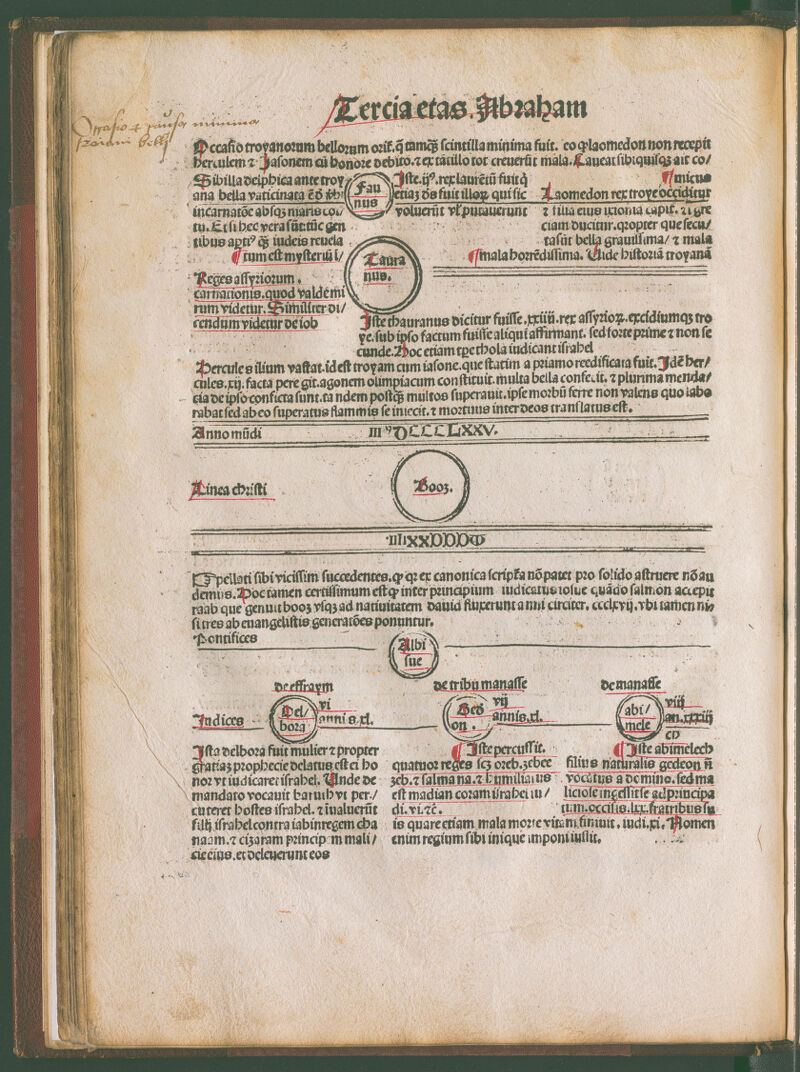 Tercia etas. Abraham
Occasio troyanorum bellorum orit̃. q̃ tamqȝ scintilla minima fuit. eo ꝙ laomedon non recepit
herculem ⁊ Jasonem cũ honore debito. ⁊ ex tãtillo tot creuerũt mala. Caueat sibi quilqȝ ait co/
Sibilla delphica ante troy
ana bella vaticinata ẽ
incarnatõe absqȝ maris coi/
tu. Et si hec vera sũt tũc gen
tibus apti⁹ qȝ iudeis reuela
¶ tum est mysteriũ i/
Reges assyriorum.
carnationis. quod valde mi
rum videtur. Similiter di/
cendum videtur de iob
Fau
nus
Iste. ij⁹. rex laurẽtũ fuit q̃
etiaʒ d̃s fuit illoꝝ qui sic
voluerũt vl̃ putauerunt
¶ micus
Laomedon rex troye occiditur
⁊ filia eius ixionia capit̃. ⁊ ĩ gre
ciam ducitur. q̃propter que secu/
ta sũt bella grauissima/ ⁊ mala
¶ mala horrẽdissima. Vide historiã troyanã
Taura
nus.
Iste thauranus dicitur fuisse. xxiiii. rex assyrioꝝ. excidiumqȝ tro
ye. sub ipso factum fuisse aliqui affirmant. sed forte prime ⁊ non se
cunde. Hoc etiam tp̃e thola iudicant israhel
Hercules ilium vastat. id est troyam cum iasone. que statim a priamo reedificata fuit. Idẽ her/
cules. xij. facta peregit. agonem olimpiacum constituit. multa bella confecit. ⁊ plurima menda/
cia de ipso conficta sunt. tandem postqȝ multos superauit. ipse morbũ ferre non valens quo labo
rabat sed ab eo superatus flammis se iniecit. ⁊ mortuus inter deos translatus est.
Anno mũdi IIII⁹DCCCCLXXV.
Linea christi
Booz.
Appellati sibi vicissim succedentes. ꝙ qȝ ex canonica script̃a nõ patet pro solido astruere nõ au
demus. Hoc tamen certissimum est ꝙ inter principium iudicatus iosue quãdo salmon accepit
raab que genuit booz vsqȝ ad natiuitatem dauid fluxerunt anni circiter. ccclxvij. vbi tamen nisi
si tres ab euangelistis generatões ponuntur.
Pontifices
Albi
sue
de effraym
de tribu manasse
de manasse
Judices
Del/
bora
vi
anni s. xl.
Ged
on.
vij
annis. xl.
abi/
mele
viij
an. xxxiij
ch
Ista delbora fuit mulier ⁊ propter
gratiaʒ prophecie delatus est ei ho
nor vt iudicaret israhel. Vnde de
mandato vocauit baruth vt per/
cuteret hostes israhel. ⁊ ĩualuerũt
filij israhel contra iabin regem cha
naam. ⁊ cizaram principem mali/
cie eius. et deleuerunt eos
¶ Iste percussit.
quatuor reges scʒ oreb. zebee
zeb. ⁊ salmana. ⁊ humiliatus
est madian coram israhel iu/
di. vi. ⁊c̃.
¶ Iste abimelech
filius naturalis gedeon ñ
vocatus a domino. sed ma
liciose ingessit se ad principa
tum. occisis. lxx. fratribus su
is quare etiam mala morte vitam finiuit. iudi. xi. Nomen
enim regium sibi inique imponi iussit.